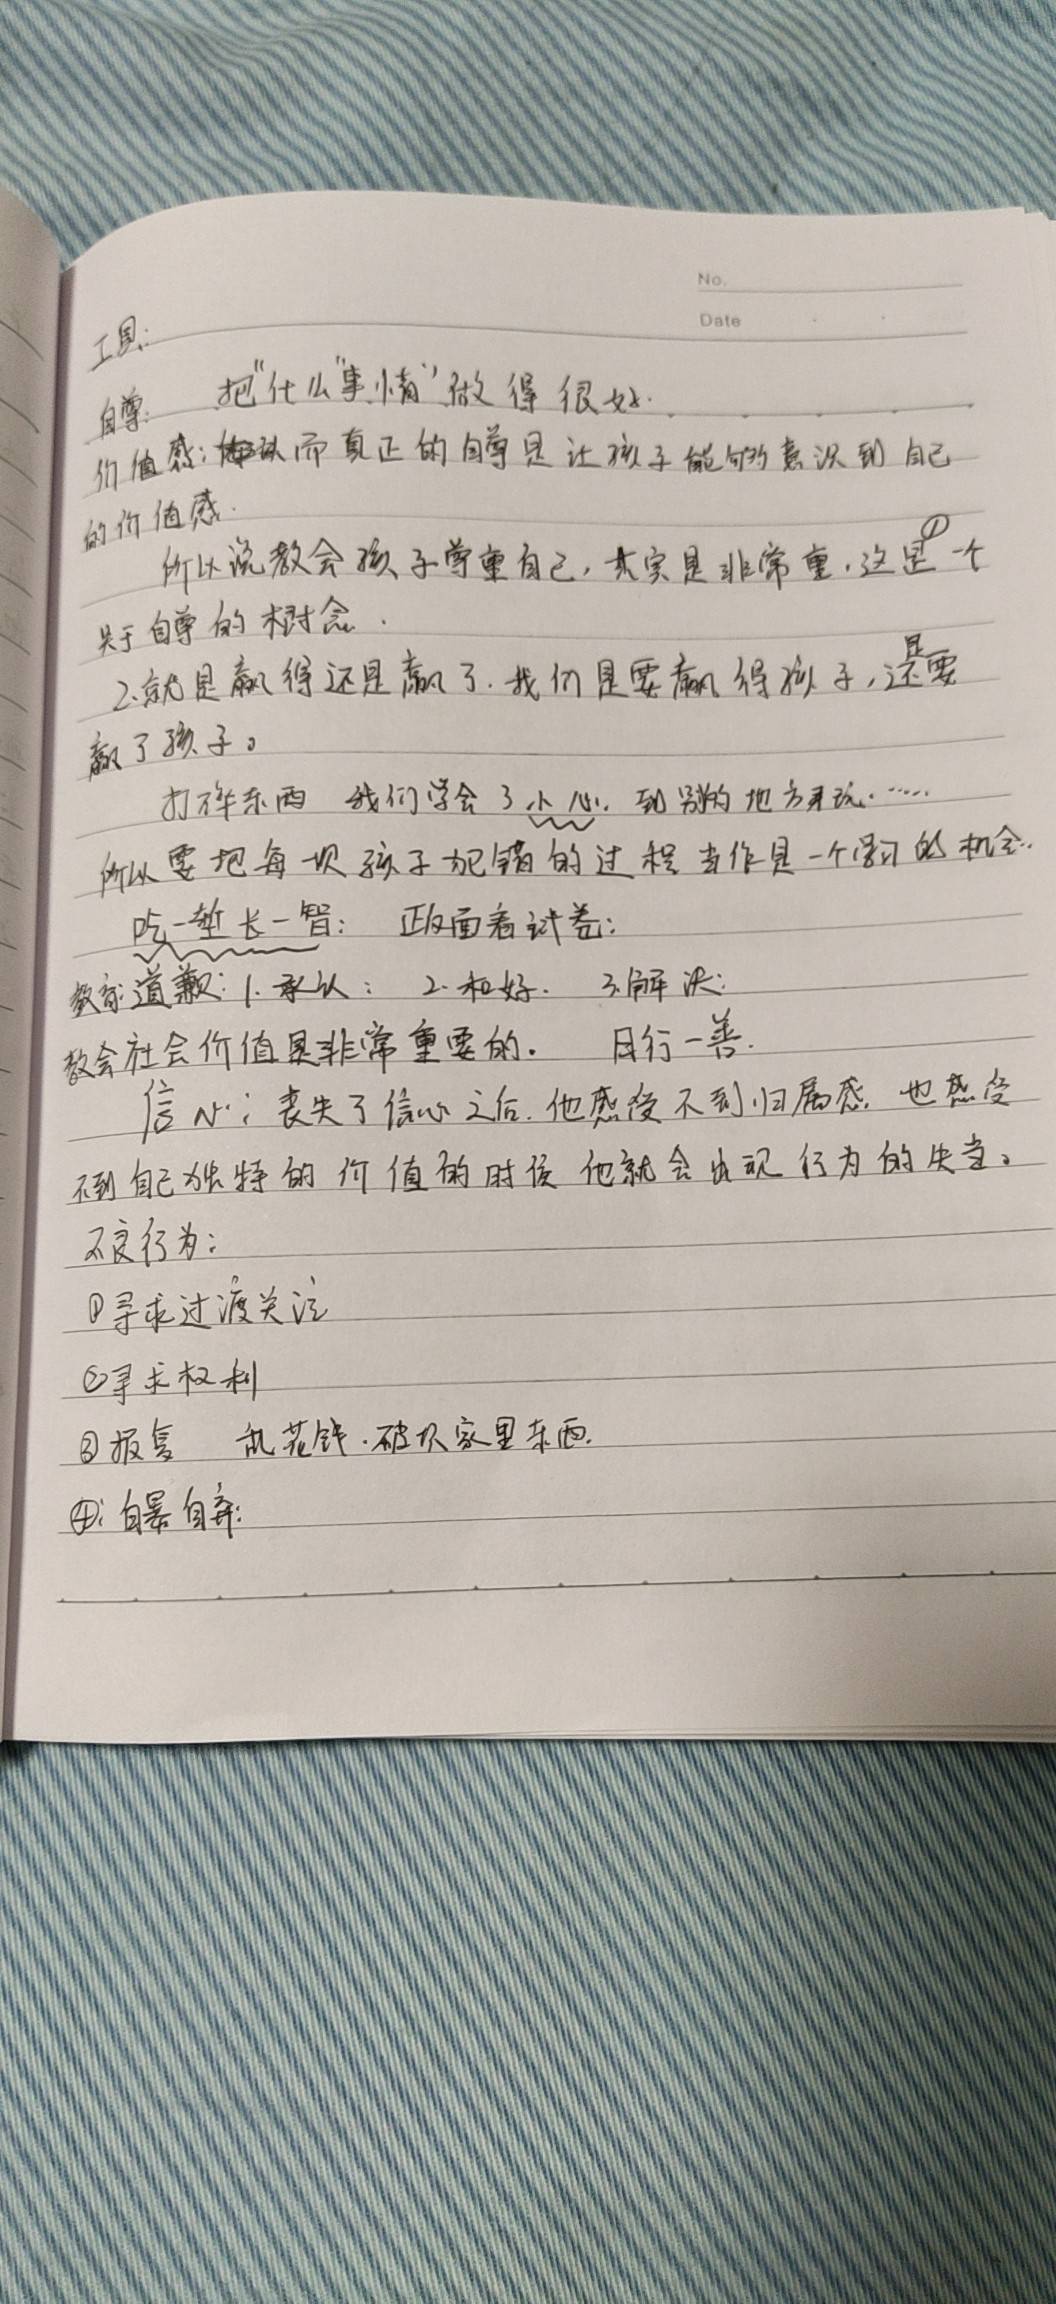 No.
Date
工具:
自尊: 把"什么"事情"做得很好.
价值感: 从而真正的自尊是让孩子能够意识到自己
的价值感.
所以说教会孩子尊重自己,其实是非常重,这是①一个
关于自尊的概念.
2.就是赢得还是赢了.我们是要赢得孩子,还是要
赢了孩子。
打碎东西 我们学会了小心. 到别的地方来玩......
所以要把每一次孩子犯错的过程当作是一个学习的机会.
吃一堑长一智: 正面看试卷:
教育道歉: 1.承认: 2.和好. 3.解决:
教会社会价值是非常重要的. 日行一善.
信心: 丧失了信心之后.他感受不到归属感.也感受
不到自己独特的价值的时候他就会出现行为的失当。
不良行为:
①寻求过渡关注
②寻求权利
③报复 乱花钱.破坏家里东西.
④:自暴自弃: